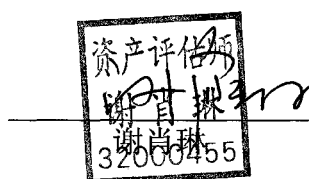 资产评估师
谢肖琳
谢肖琳
32000455